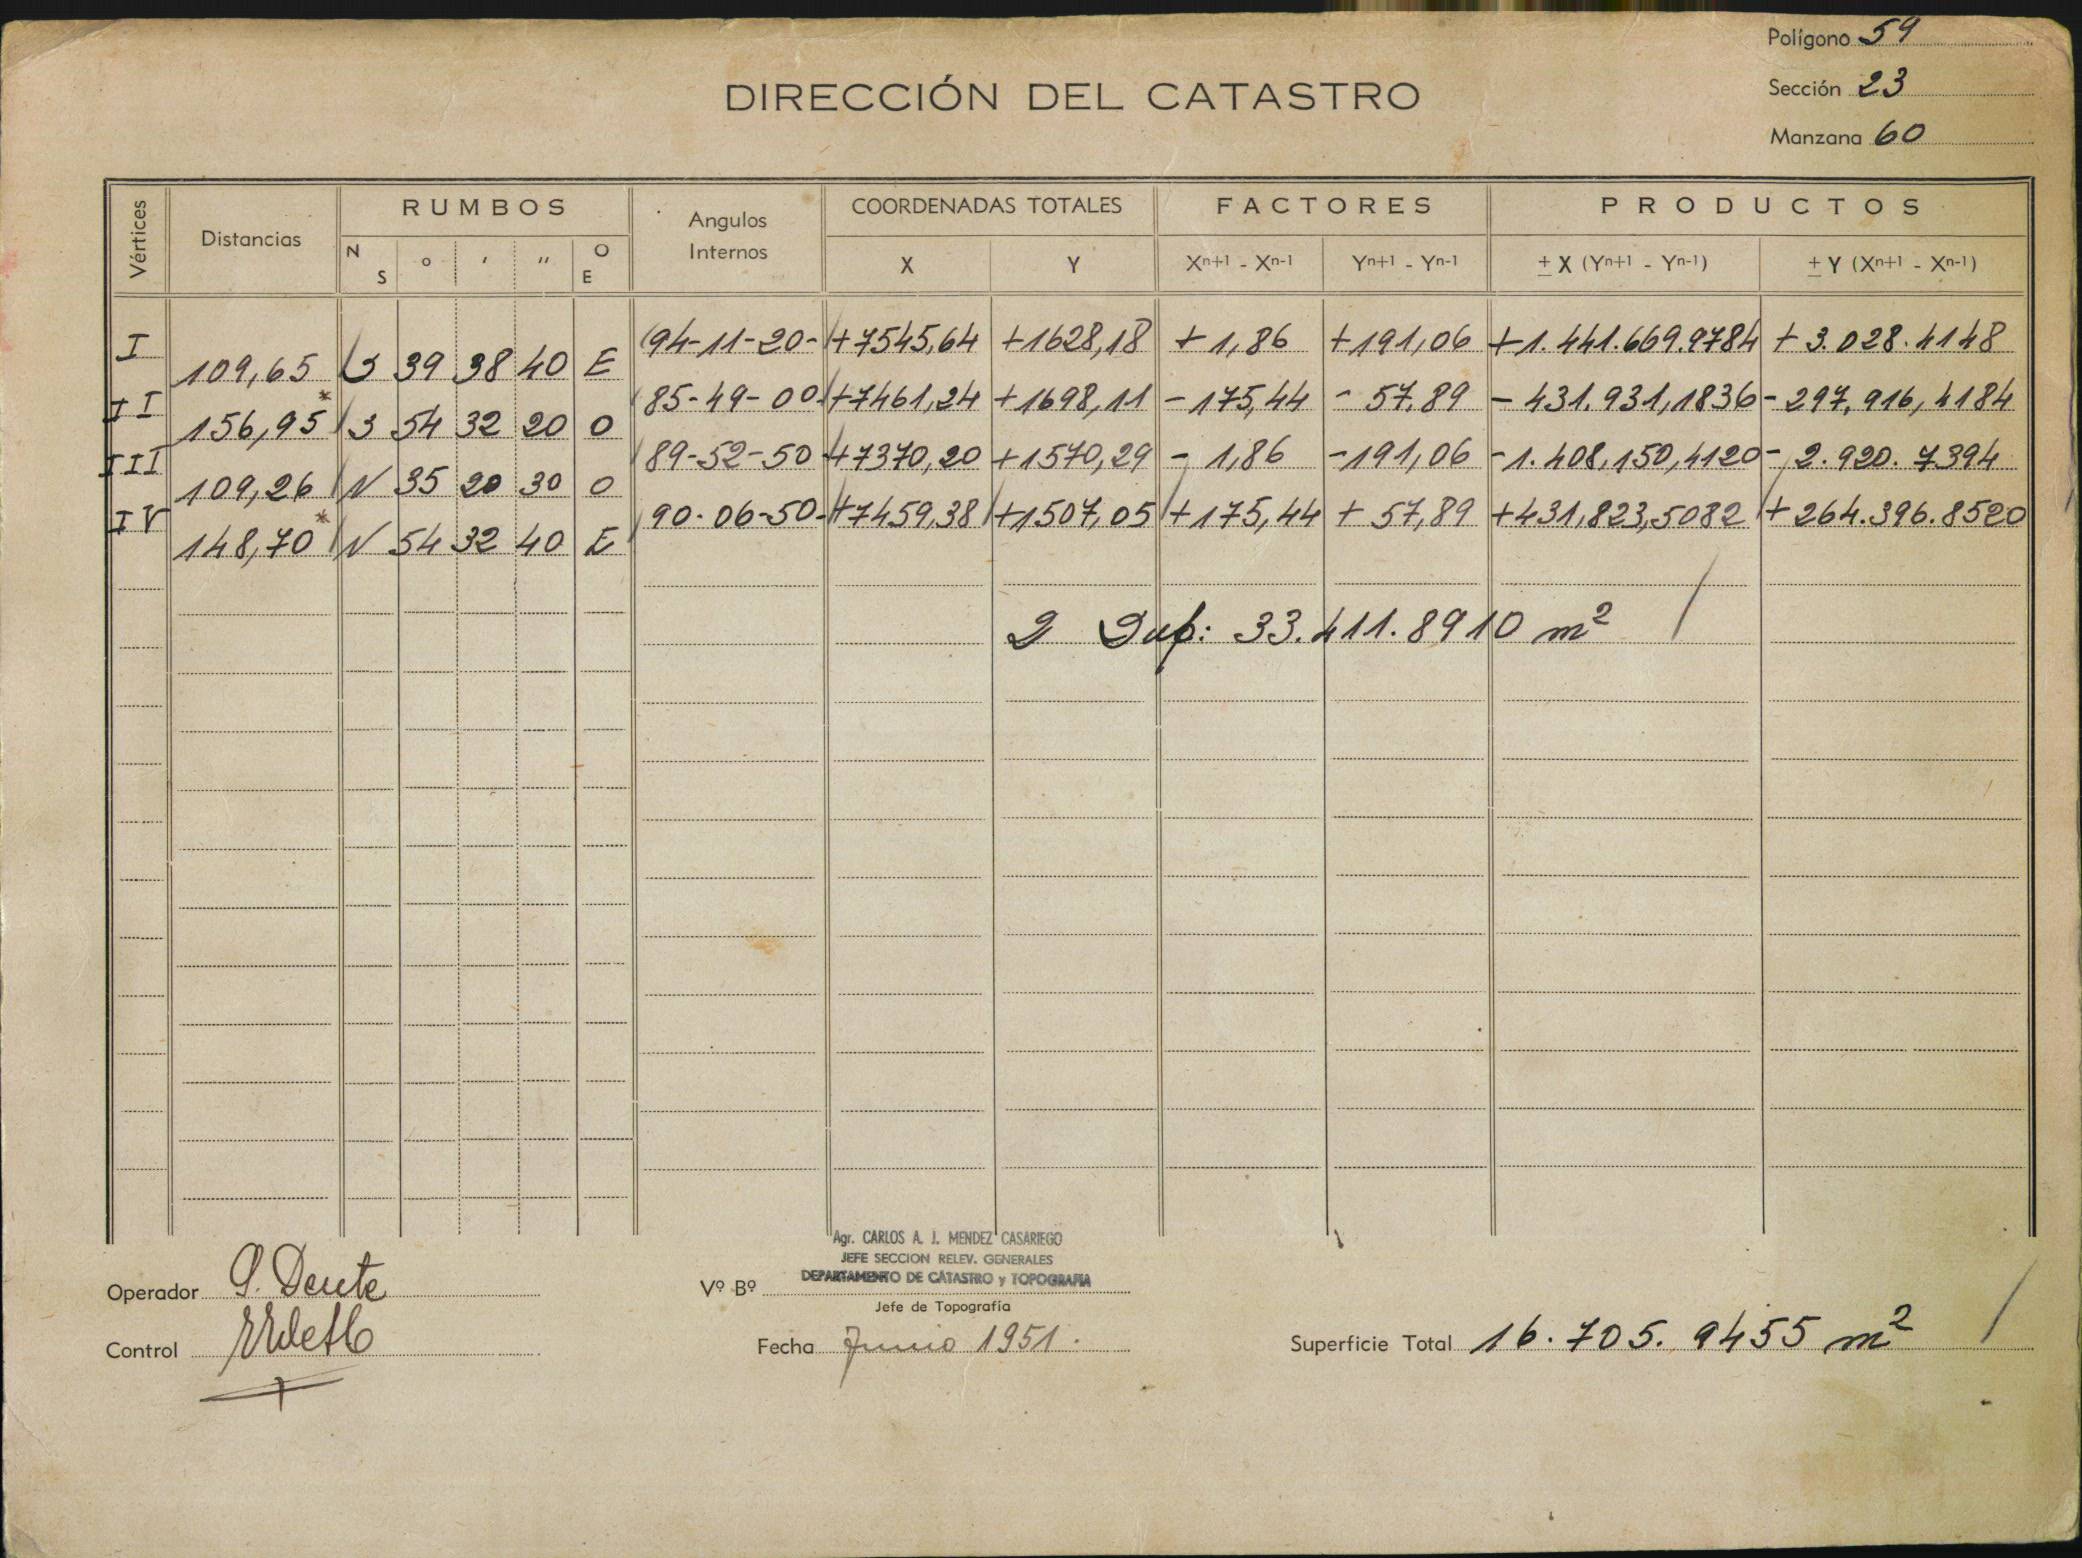 Polígono 59
DIRECCIÓN DEL CATASTRO
Sección 23
Manzana 60
Vértices Distancias RUMBOS Angulos Internos COORDENADAS TOTALES FACTORES PRODUCTOS
N S ° ' '' O E X Y Xⁿ⁺¹ - Xⁿ⁻¹ Yⁿ⁺¹ - Yⁿ⁻¹ ± X (Yⁿ⁺¹ - Yⁿ⁻¹) ± Y (Xⁿ⁺¹ - Xⁿ⁻¹)
I 94-11-20- +7545,64 +1628,18 +1,86 +191,06 +1.441.669.9784 + 3.028.4148
109,65 S 39 38 40 E
II 85-49-00 +7461,24 +1698,11 -175,44 - 57,89 - 431.931,1836 - 297,916,4184
156,95* S 54 32 20 O
III 89-52-50 +7370,20 +1570,29 - 1,86 -191,06 -1.408,150,4120 - 2.920.7394
109,26 N 35 20 30 O
IV 90-06-50- +7459,38 +1507,05 +175,44 + 57,89 +431,823,5082 + 264.396.8520
148,70* N 54 32 40 E
2 Sup: 33.411.8910 m²
Agr. CARLOS A. J. MENDEZ CASARIEGO
JEFE SECCION RELEV. GENERALES
DEPARTAMENTO DE CATASTRO y TOPOGRAFIA
Operador Vº Bº
Jefe de Topografía
Control Fecha Junio 1951. Superficie Total 16.705.9455 m²